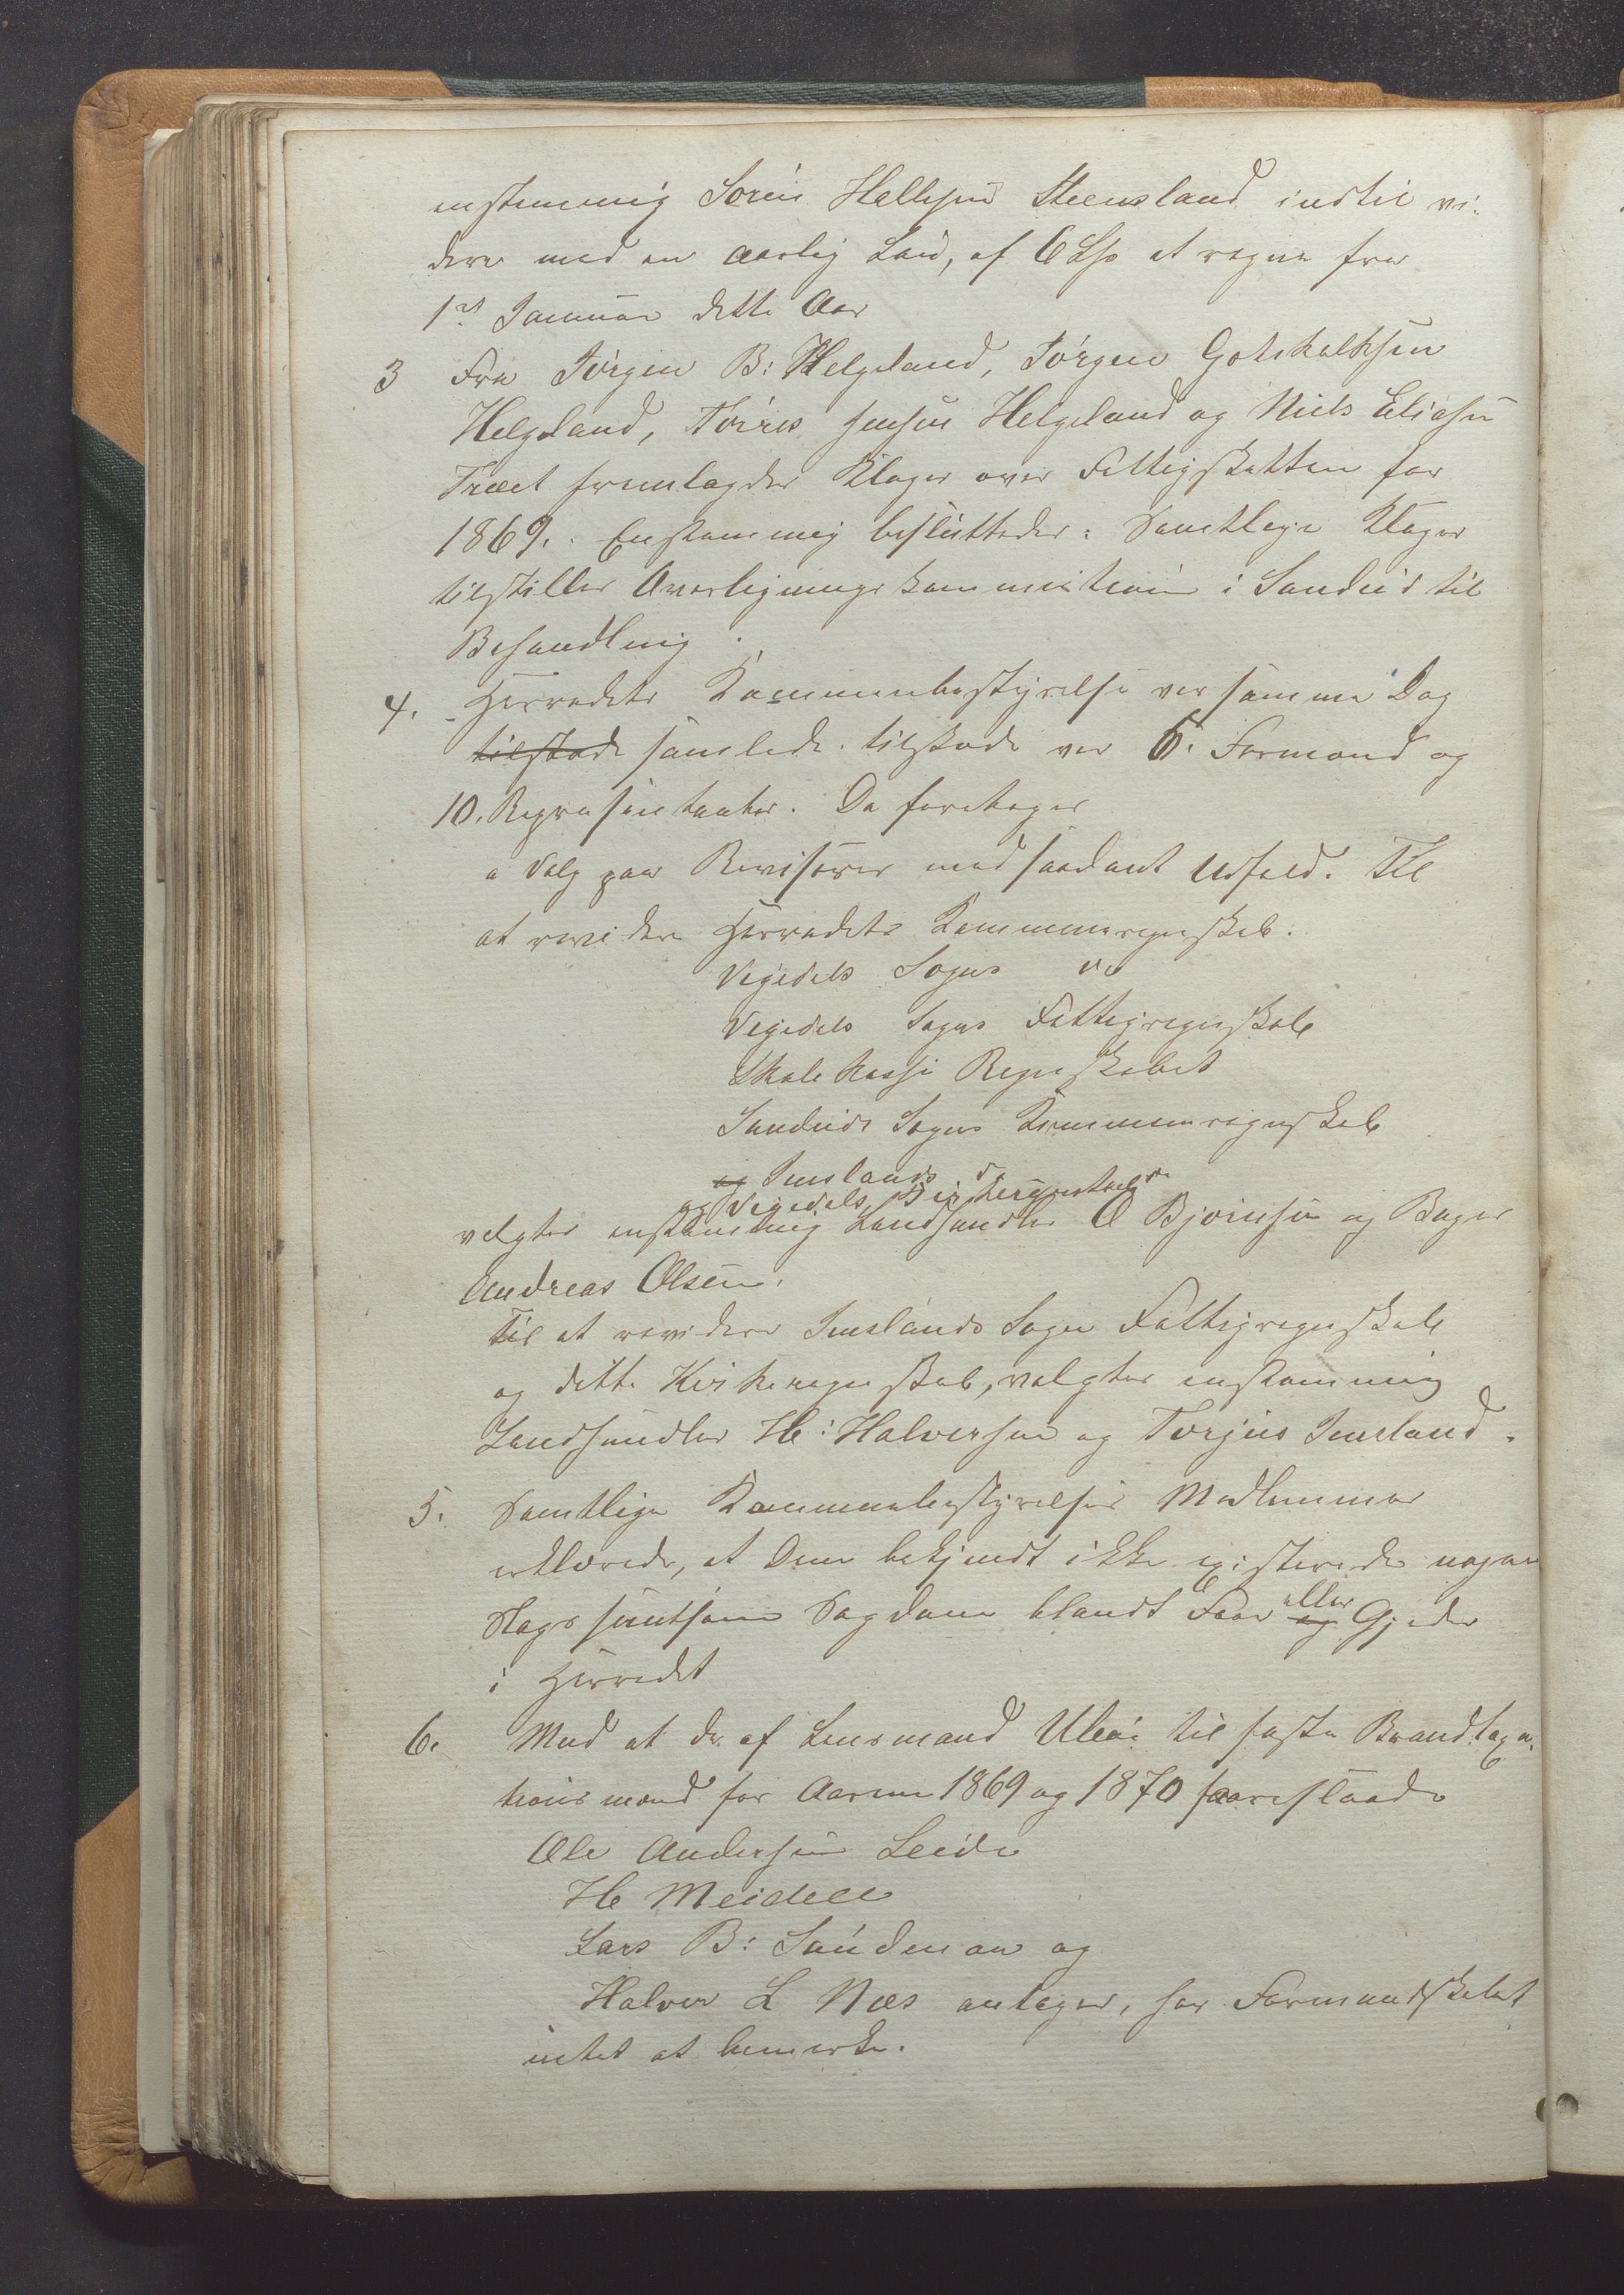 enstemmig Sørén Hellesen Steensland indtil vi-
dere med en aarlig Løn, af 6 Spd at regne fra
1st Januar dette Aar
3 Fra Jørgen B: Helgeland, Jørgen Gotskalksen
Helgeland, Tørres Jensen Helgeland og Niels Eliasen
Træet fremlagdes Klager over Fattigskatten for
1869. Enstemmig besluttedes: Samtlige Klager
tilstilles Overligningskommisionen i Sandeid til
Behandling.
4. Herredets Kommunebestyrelse var samme Dag
tilstede samlede. tilstede var 6. Formænd og
10. Repræsentanter. Da foretages
a Valg paa Revisorer med saadant Udfald. Til
at revidere Herredets Kommuneregnskab.
Vigedals Sogns do
Vigedals Sogns Fattigregnskab
Skolekasse Regnskabet
Sandeids Sogns Kommuneregnskab
og Imslands do
og Vigedals Kirkeregnskab
valgtes enstemmig Landhandler O Bjørnsen og Bager
Andreas Olsen.
Til at revidere Imslands Sogns Fattigregnskab
og dette Kirkeregnskab, valgtes enstemmig
Landhandler H: Halversen og Torjus Imsland.
5. Samtlige Kommunebestyrelsens Medlemmer
erklærede, at Dem bekjendt ikke existerede nogen
Slags smitsom Sygdom blandt Faar og eller Gjeder
i Herredet
6. Mod at de af Lensmand Uleøe til faste Brandtaxa-
tionsmænd for Aarene 1869 og 1870 foreslaaede
Ole Andersen Leide
H Meidell
Lars B: Søndenaa og
Halvor L Næs antages, har Formandskabet
intet at bemærke.